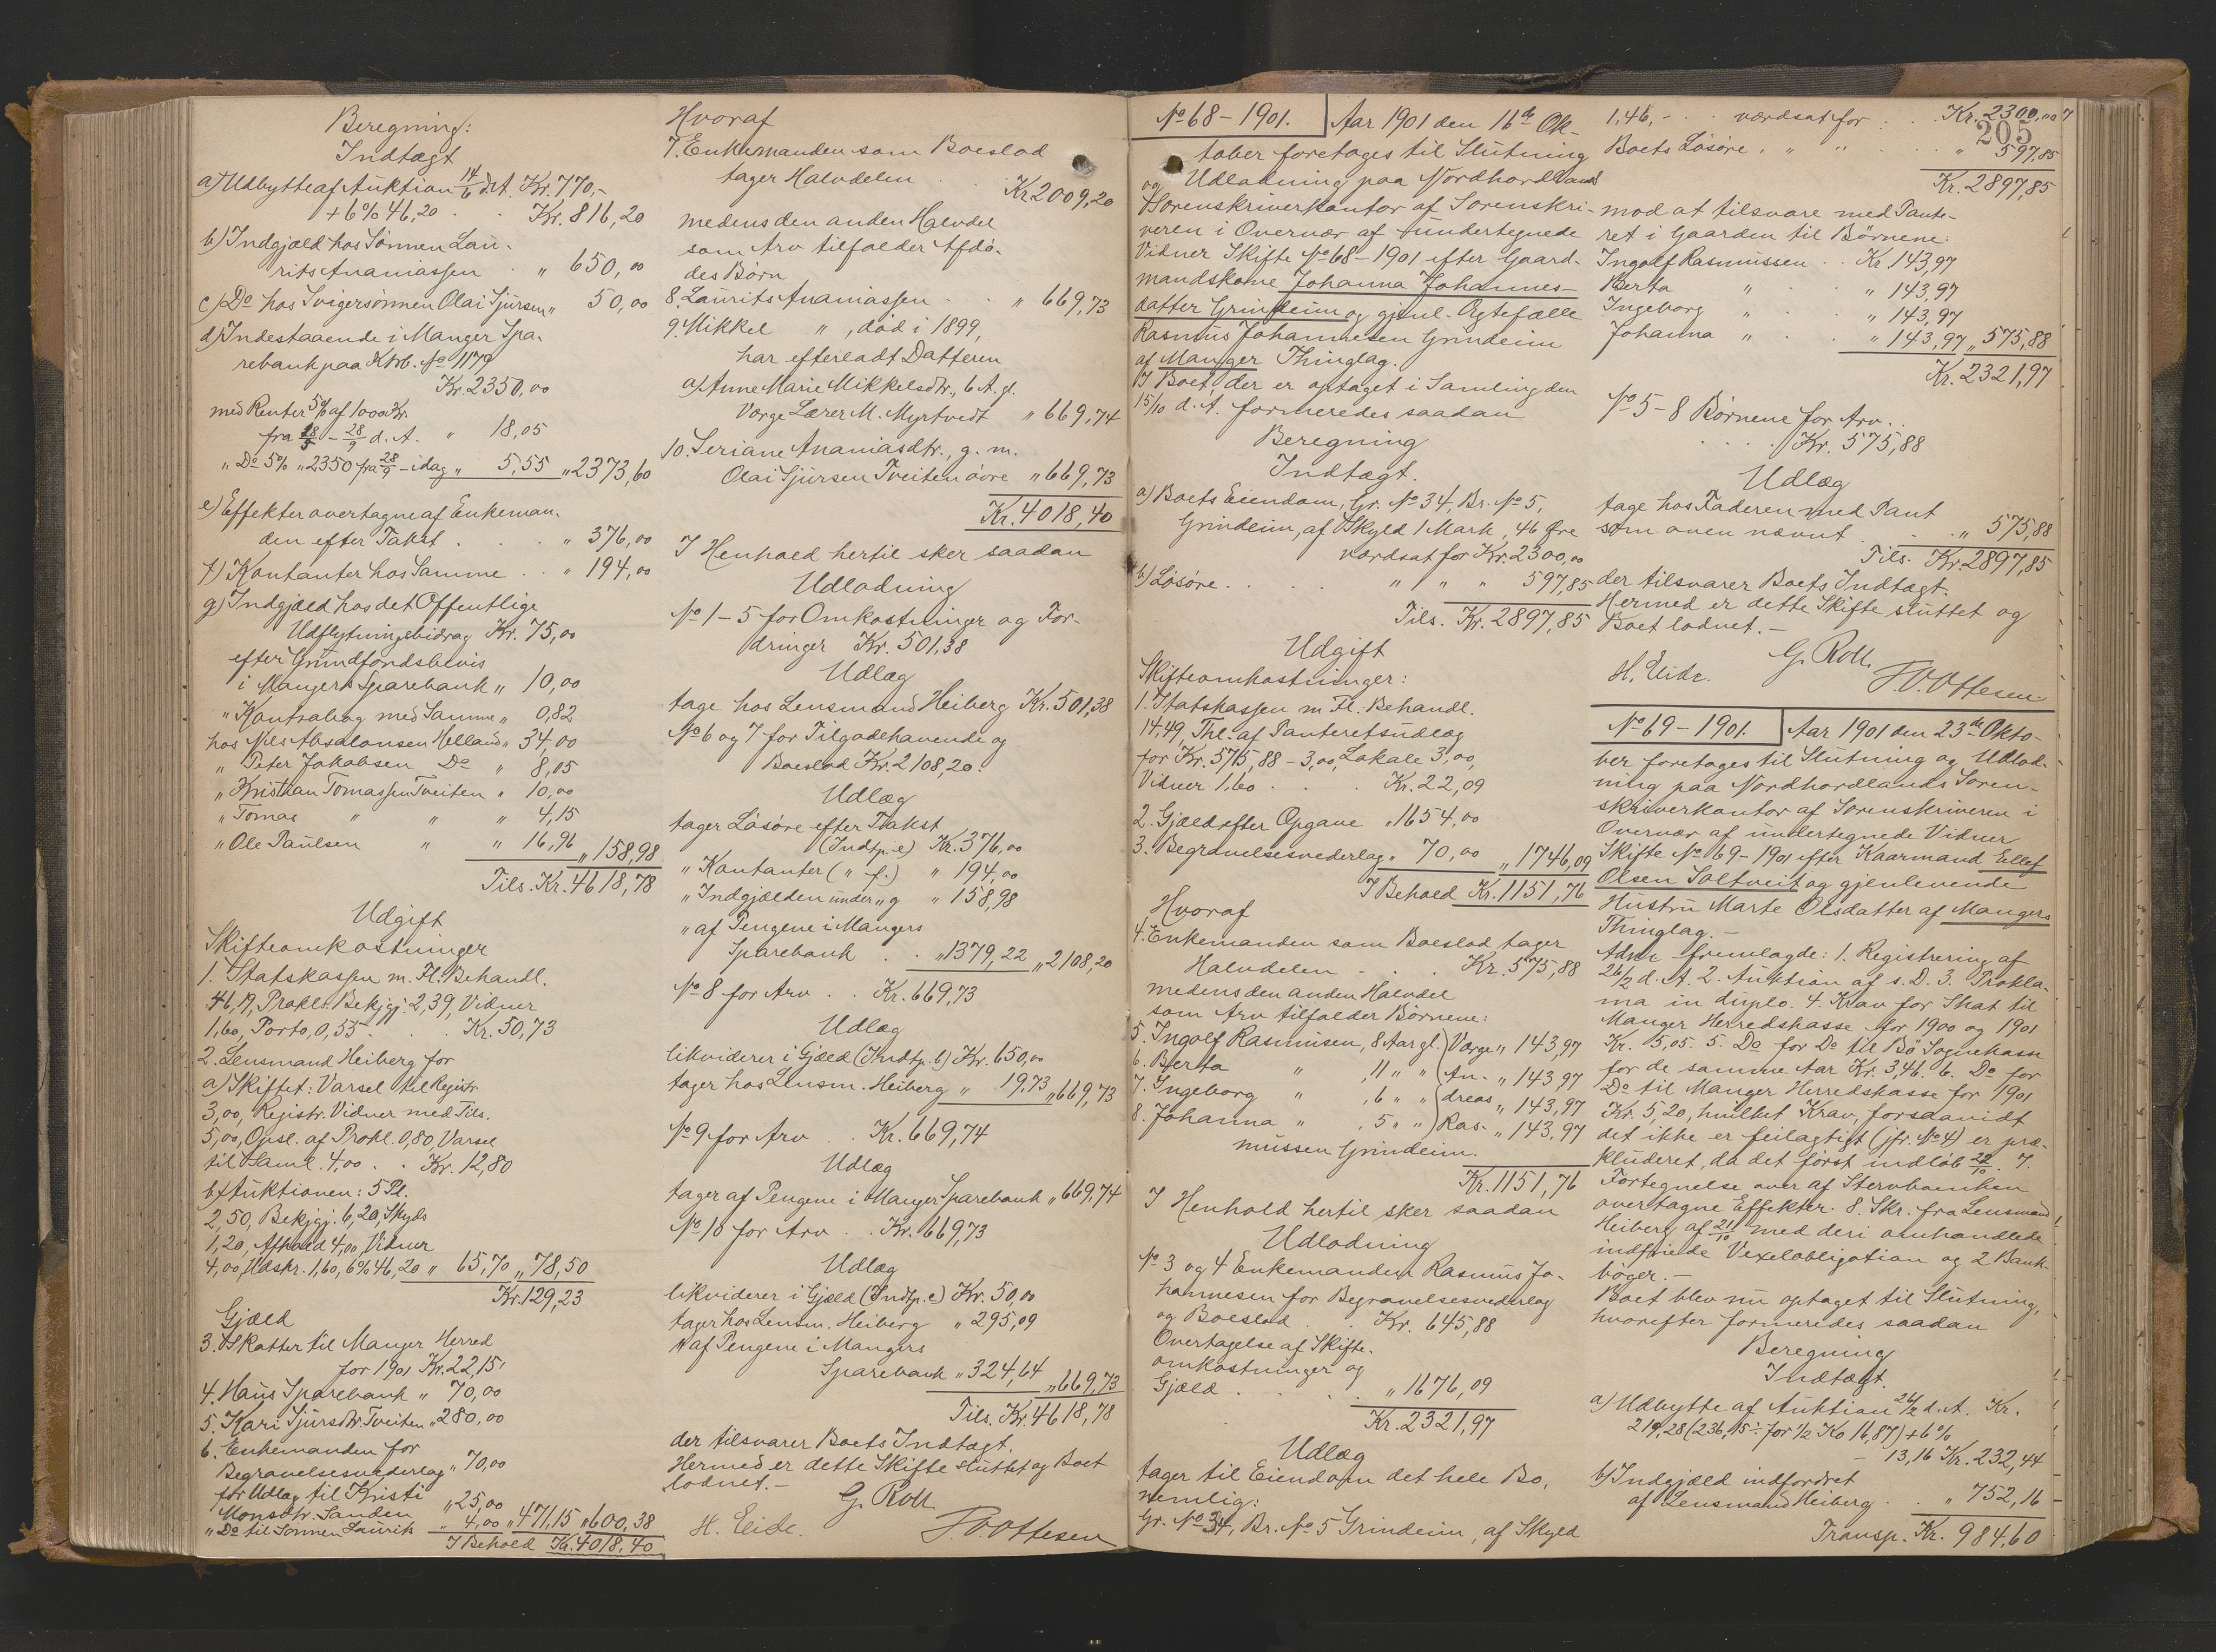 Beregning:
Indtægt
a) Udbytte af Auktion 14/6 d. A. Kr. 770,-
+ 6% 46,20 . . Kr. 816,20
b) Indgjæld hos Sønnen Lau-
rits Ananiassen . „ 650,00
c) Do hos Svigersønnen Olai Sjursen „ 50,00
d) Indestaaende i Manger Spa-
rebank paa Ktrb. No 1179
Kr. 2350,00
med Renter 5% af 1000 Kr.
fra 18/5 - 28/9 d. A. „ 18,05
„ Do 5% „ 2350 fra 28/9 - idag „ 5,55 „ 2373,60
e) Effekter overtagne af Enkeman-
den efter Takst . . . „ 376,00
f) Kontanter hos Samme . . „ 194,00
g) Indgjæld hos det Offentlige
Udflytningsbidrag Kr. 75,00
efter Grundfondsbevis
i Mangers Sparebank „ 10,00
„ Kontrabog med Samme „ 0,82
hos Nils Absalonsen Helland „ 34,00
„ Peter Jakobsen Do „ 8,05
„ Kristian Tomassen Tveiten „ 10,00
„ Tomas „ „ „ 4,15
„ Ole Paulsen „ „ 16,96 „ 158,98
Tils. Kr. 4618,78
Udgift
Skifteomkostninger
1. Statskassen m. Fl. Behandl.
46,19, Prokl. Bekjgj. 2,39, Vidner
1,60, Porto, 0,55 . . Kr. 50,73
2. Lensmand Heiberg for
a) Skiftet: Varsel til Registr.
3,00, Registr. Vidner med Tils.
5,00, Opsl. af Prokl. 0,80, Varsel
til Saml. 4,00 . . Kr. 12,80
b) Auktionen: 5 Pl.
2,50, Bekjgj. 6,20, Skyds
1,20, Afhold 4,00, Vidner
4,00, Udskr. 1,60, 6% 46,20 „ 65,70 „ 78,50
Kr. 129,23
Gjæld
3. Skatter til Manger Herred
for 1901 Kr. 22,15
4. Haus Sparebank „ 70,00
5. Kari Sjursdtr. Tveiten „ 280,00
6. Enkemanden for
Begravelsesvederlag „ 70,00
for Udlæg til Kristi
Monsdtr. Sanden „ 25,00
„ Do til Sønnen Laurits „ 4,00 „ 471,15 „ 600,38
I Behold Kr. 4018,40
Hvoraf
7. Enkemanden som Boeslod
tager Halvdelen . . Kr. 2009,20
medens den anden Halvdel
som Arv tilfalder Afdø-
des Børn
8. Laurits Ananiassen . . „ 669,73
9. Mikkel „ , død i 1899,
har efterladt Datteren
a) Anne Marie Mikkelsdtr., 6 A. gl.
Værge Lærer M. Myrtvedt „ 669,74
10. Seriane Ananiasdtr., g. m.
Olai Sjursen Tveiten øvre „ 669,73
Kr. 4018,40
I Henhold hertil sker saadan
Udlodning
No 1-5 for Omkostninger og For-
dringer Kr. 501,38
Udlæg
tage hos Lensmand Heiberg Kr. 501,38
No 6 og 7 for Tilgodehavende og
Boeslod Kr. 2108,20.
Udlæg
tager Løsøre efter Takst
(Indtp. e) Kr. 376,00
„ Kontanter ( „ f.) „ 194,00
„ Indgjælden under „ g „ 158,98
„ af Pengene i Mangers
Sparebank . . „ 1379,22 „ 2108,20
No 8 for Arv . . Kr. 669,73
Udlæg
likviderer i Gjæld (Indtp. b) Kr. 650,00
tager hos Lensm. Heiberg „ 19,73 „ 669,73
No 9 for Arv . . Kr. 669,74
Udlæg
tager af Pengene i Manger Sparebank „ 669,74
No 10 for Arv . . Kr. 669,73
Udlæg
likviderer i Gjæld (Indtp. c) Kr. 50,00
tager hos Lensm. Heiberg „ 295,09
„ af Pengene i Mangers
Sparebank „ 324,64 „ 669,73
Tils. Kr. 4618,78
der tilsvarer Boets Indtægt.
Hermed er dette Skifte sluttet og Boet
lodnet.-
G. Roll.
H. Eide. P. O. Ottesen
No 68 - 1901. Aar 1901 den 16de Ok-
tober foretoges til Slutning
og Udlodning paa Nordhordlands
Sorenskriverkontor af Sorenskri-
veren i Overvær af undertegnede
Vidner Skifte No 68-1901 efter Gaard-
mandskone Johanna Johannes-
datter Grindeim og gjenl. Ægtefælle
Rasmus Johannesen Grindeim
af Manger Thinglag.
I Boet, der er optaget i Samling den
15/10 d. A. formeredes saadan
Beregning
Indtægt.
a) Boets Eiendom, Gr. No 34, Br. No 5,
Grindeim, af Skyld 1 Mark, 46 Øre
værdsat for Kr. 2300,00
b) Løsøre . . . „ „ „ 597,85
Tils. Kr. 2897,85
Udgift
Skifteomkostninger:
1. Statskassen m Fl. Behandl.
14,49, Thl. af Panteretsudlæg
for Kr. 575,88 - 3,00, Lokale 3,00,
Vidner 1,60 . . . Kr. 22,09
2. Gjæld efter Opgave „ 1654,00
3. Begravelsesvederlag „ 70,00 „ 1746,09
I Behold Kr. 1151,76
Hvoraf
4. Enkemanden som Boeslod tager
Halvdelen . . . Kr. 575,88
medens den anden Halvdel
som Arv tilfalder Børnene:
5. Ingolf Rasmussen, 8 Aar gl. ) Værge „ 143,97
6. Berta „ , 11 „ „ ( An- „ 143,97
7. Ingeborg „ , 6 „ „ ( dreas „ 143,97
8. Johanna „ , 5 „ „ ) Ras- „ 143,97
mussen Grindeim.
Kr. 1151,76
I Henhold hertil sker saadan
Udlodning
No 3 og 4 Enkemanden Rasmus Jo-
hannesen for Begravelsesvederlag
og Boeslod . . Kr. 645,88
Overtagelse af Skifte-
omkostninger og
Gjæld . . . . „ 1676,09
Kr. 2321,97
Udlæg
tager til Eiendom det hele Bo,
nemlig:
Gr. No 34, Br. No 5 Grindeim, af Skyld
205
1,46,- . . værdsat for . . Kr. 2300,00
Boets Løsøre . „ „ . . „ 597,85
Kr. 2897,85
mod at tilsvare med Pante-
ret i Gaarden til Børnene:
Ingolf Rasmussen . . Kr. 143,97
Berta „ . „ 143,97
Ingeborg „ . „ 143,97
Johanna „ . „ 143,97 „ 575,88
Kr. 2321,97
No 5-8 Børnene for Arv . .
. . . . Kr. 575,88
Udlæg
tage hos Faderen med Pant
som oven nævnt . . . „ 575,88
Tils. Kr. 2897,85
der tilsvarer Boets Indtægt.
Hermed er dette Skifte sluttet og
Boet lodnet.-
G. Roll.
H. Eide. P. O. Ottesen.
No 69 - 1901. Aar 1901 den 23de Okto-
ber foretoges til Slutning og Udlod-
ning paa Nordhordlands Soren-
skriverkontor af Sorenskriveren i
Overvær af undertegnede Vidner
Skifte No 69-1901 efter Kaarmand Ellef
Olsen Soltveit og gjenlevende
Hustru Marte Olsdatter af Mangers
Thinglag.-
Adm. fremlagde: 1. Registrering af
26/2 d. A. 2. Auktion af s. D. 3. Prokla-
ma in duplo. 4. Krav for Skat til
Manger Herredskasse for 1900 og 1901
Kr. 5,05. 5. Do for Do til Bø Sognekasse
for de samme Aar Kr. 3,46. 6. Do for
Do til Manger Herredskasse for 1901
Kr. 5,20, hvilket Krav, forsaavidt
det ikke er feilagtigt (jfr. No 4) er præ-
kluderet, da det først indløb 22/10. 7.
Fortegnelse over af Stervboenken
overtagne Effekter. 8. Skr. fra Lensmand
Heiberg af 21/10 med deri omhandlede
indfriede Vexelobligation og 2 Bank-
bøger.-
Boet blev nu optaget til Slutning,
hvorefter formeredes saadan
Beregning
Indtægt.
a) Udbytte af Auktion 26/2 d. A. Kr.
219,28 (236,15 ÷ for 1/2 Ko 16,87) + 6%
- 13,16 Kr. 232,44
b) Indgjæld indfordret
af Lensmand Heiberg . . „ 752,16
Transp. Kr. 984,60